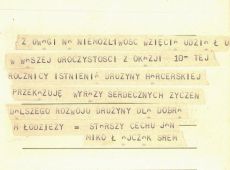 Z UWAGI NA NIEMOŻLIWOŚĆ WZIĘCIA UDZIAŁU
W WASZEJ UROCZYSTOŚCI Z OKAZJI 10-TEJ
ROCZNICY ISTNIENIA DRUŻYNY HARCERSKIEJ
PRZEKAZUJĘ WYRAZY SERDECZNYCH ŻYCZEŃ
DALSZEGO ROZWOJU DRUŻYNY DLA DOBRA
MŁODZIEŻY = STARSZY CECHU JAN
MIKOŁAJCZAK ŚREM